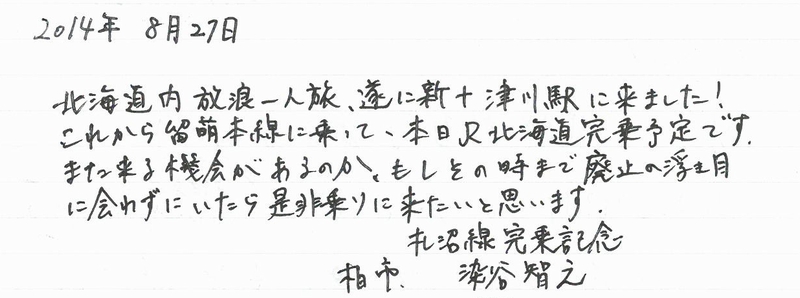 2014年 8月27日
北海道内放浪一人旅、遂に新十津川駅に来ました!
これから留萌本線に乗って、本日JR北海道完乗予定です.
また来る機会があるのか、もしその時まで廃止の浮き目
に会わずにいたら是非乗りに来たいと思います.
札沼線完乗記念
柏市. 染谷智元